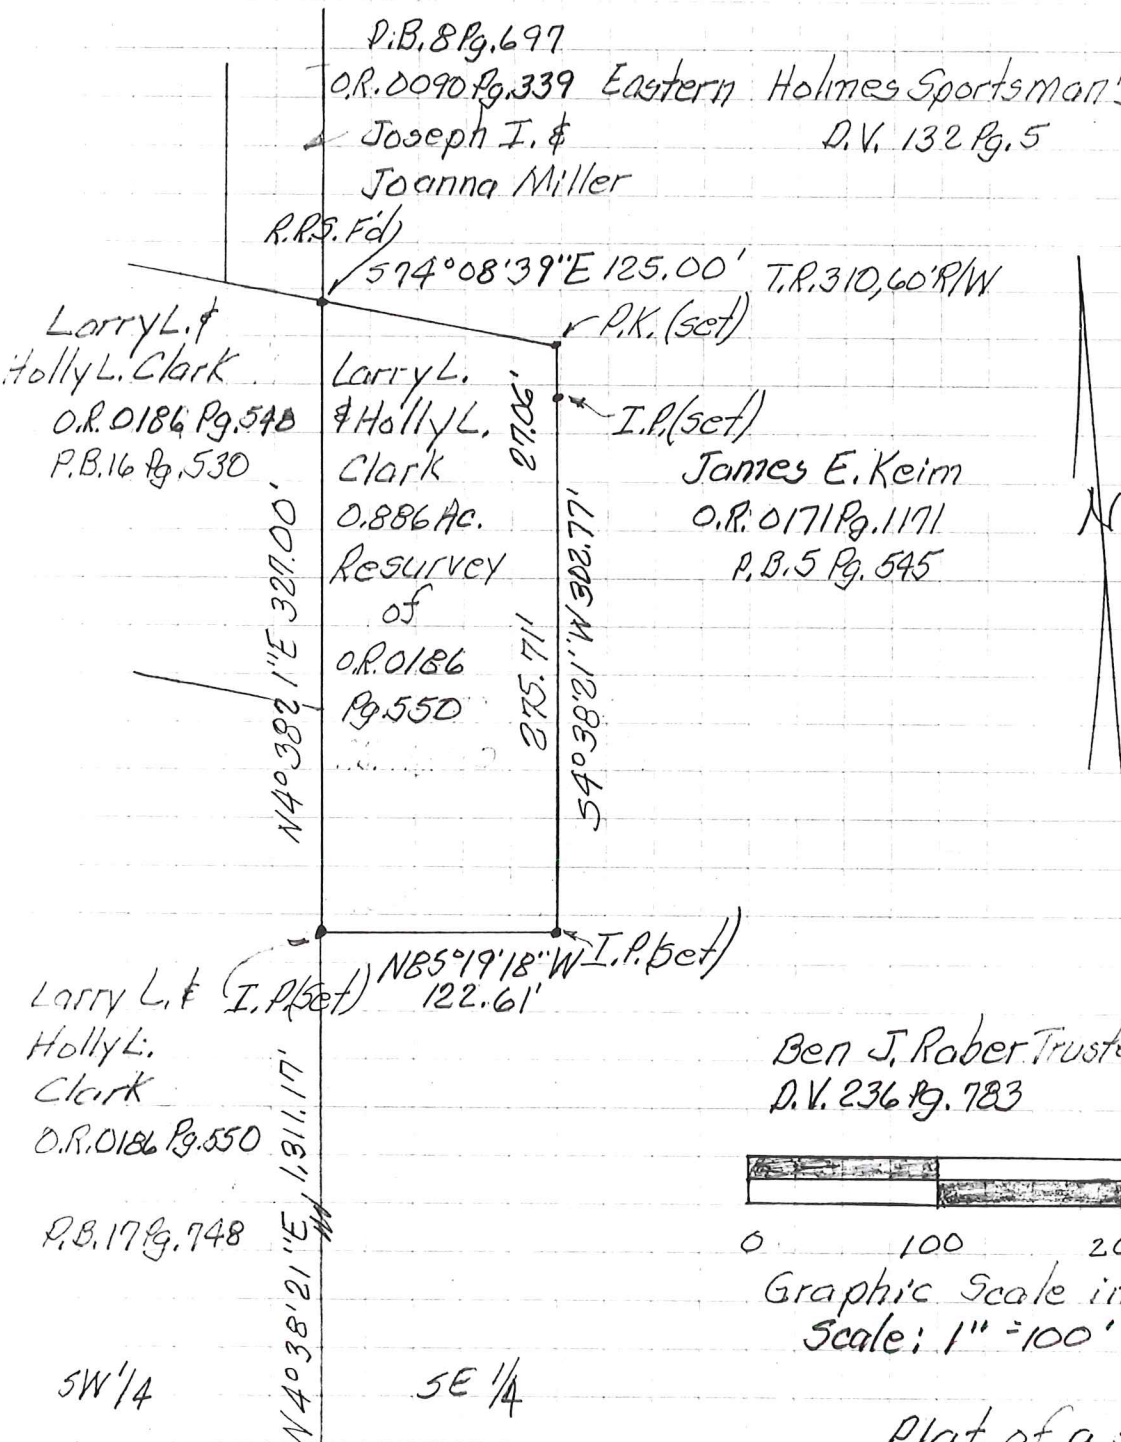 P.B. 8 Pg. 697
O.R. 0090 Pg. 339
Joseph I. &
Joanna Miller
Eastern Holmes Sportsman's
D.V. 132 Pg. 5
R.R.S. F'd)
S74°08'39"E 125.00'
T.R. 310, 60' R/W
P.K. (set)
Larry L. &
Holly L. Clark
O.R. 0186 Pg. 548
P.B. 16 Pg. 530
Larry L.
& Holly L.
Clark
0.886 Ac.
Resurvey
of
O.R. 0186
Pg. 550
27.06'
I.P. (set)
James E. Keim
O.R. 0171 Pg. 1171
P.B. 5 Pg. 545
N
N4°38'21"E 327.00'
275.71'
S4°38'21"W 302.77'
I.P. (set)
N85°19'18"W
122.61'
I.P. (set)
Larry L. &
Holly L.
Clark
O.R. 0186 Pg. 550
P.B. 17 Pg. 748
N4°38'21"E 1,311.17'
Ben J. Raber
D.V. 236 Pg. 783
0 100
Graphic Scale
Scale: 1" = 100'
SW 1/4
SE 1/4
Plat of a